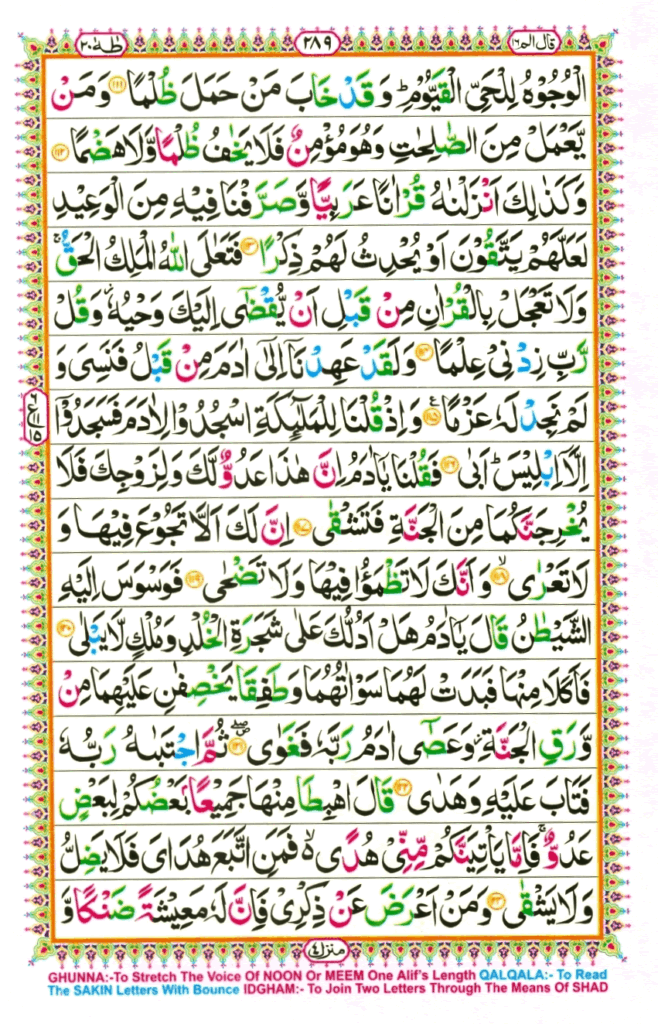 طٰهٰ ٢٠
٢٨٩
قال الم ١٦
الْوُجُوْهُ لِلْحَيِّ الْقَيُّوْمِ ؕ وَقَدْ خَابَ مَنْ حَمَلَ ظُلْمًا ۝۱۱۱ وَمَنْ
يَّعْمَلْ مِنَ الصّٰلِحٰتِ وَهُوَ مُؤْمِنٌ فَلَا يَخٰفُ ظُلْمًا وَّلَا هَضْمًا ۝۱۱۲
وَكَذٰلِكَ اَنْزَلْنٰهُ قُرْاٰنًا عَرَبِيًّا وَّصَرَّفْنَا فِيْهِ مِنَ الْوَعِيْدِ
لَعَلَّهُمْ يَتَّقُوْنَ اَوْ يُحْدِثُ لَهُمْ ذِكْرًا ۝۱۱۳ فَتَعٰلَى اللّٰهُ الْمَلِكُ الْحَقُّ ۚ
وَلَا تَعْجَلْ بِالْقُرْاٰنِ مِنْ قَبْلِ اَنْ يُّقْضٰۤى اِلَيْكَ وَحْيُهٗ ؗ وَقُلْ
رَّبِّ زِدْنِيْ عِلْمًا ۝۱۱۴ وَلَقَدْ عَهِدْنَاۤ اِلٰۤى اٰدَمَ مِنْ قَبْلُ فَنَسِيَ وَ
لَمْ نَجِدْ لَهٗ عَزْمًا ۝۱۱۵ وَاِذْ قُلْنَا لِلْمَلٰٓئِكَةِ اسْجُدُوْا لِاٰدَمَ فَسَجَدُوْۤا
ع ١٥
اِلَّاۤ اِبْلِيْسَ ؕ اَبٰى ۝۱۱۶ فَقُلْنَا يٰۤاٰدَمُ اِنَّ هٰذَا عَدُوٌّ لَّكَ وَلِزَوْجِكَ فَلَا
يُخْرِجَنَّكُمَا مِنَ الْجَنَّةِ فَتَشْقٰى ۝۱۱۷ اِنَّ لَكَ اَلَّا تَجُوْعَ فِيْهَا وَ
لَا تَعْرٰى ۙ۝۱۱۸ وَاَنَّكَ لَا تَظْمَؤُا فِيْهَا وَلَا تَضْحٰى ۝۱۱۹ فَوَسْوَسَ اِلَيْهِ
الشَّيْطٰنُ قَالَ يٰۤاٰدَمُ هَلْ اَدُلُّكَ عَلٰى شَجَرَةِ الْخُلْدِ وَمُلْكٍ لَّا يَبْلٰى ۝۱۲۰
فَاَكَلَا مِنْهَا فَبَدَتْ لَهُمَا سَوْاٰتُهُمَا وَطَفِقَا يَخْصِفٰنِ عَلَيْهِمَا مِنْ
وَّرَقِ الْجَنَّةِ ؗ وَعَصٰۤى اٰدَمُ رَبَّهٗ فَغَوٰى ۝۱۲۱ ثُمَّ اجْتَبٰىهُ رَبُّهٗ
فَتَابَ عَلَيْهِ وَهَدٰى ۝۱۲۲ قَالَ اهْبِطَا مِنْهَا جَمِيْعًۢا بَعْضُكُمْ لِبَعْضٍ
عَدُوٌّ ۚ فَاِمَّا يَاْتِيَنَّكُمْ مِّنِّيْ هُدًى ۙ فَمَنِ اتَّبَعَ هُدَايَ فَلَا يَضِلُّ
وَلَا يَشْقٰى ۝۱۲۳ وَمَنْ اَعْرَضَ عَنْ ذِكْرِيْ فَاِنَّ لَهٗ مَعِيْشَةً ضَنْكًا وَّ
منزل ٤
GHUNNA:-To Stretch The Voice Of NOON Or MEEM One Alif's Length QALQALA:- To Read
The SAKIN Letters With Bounce IDGHAM:- To Join Two Letters Through The Means Of SHAD